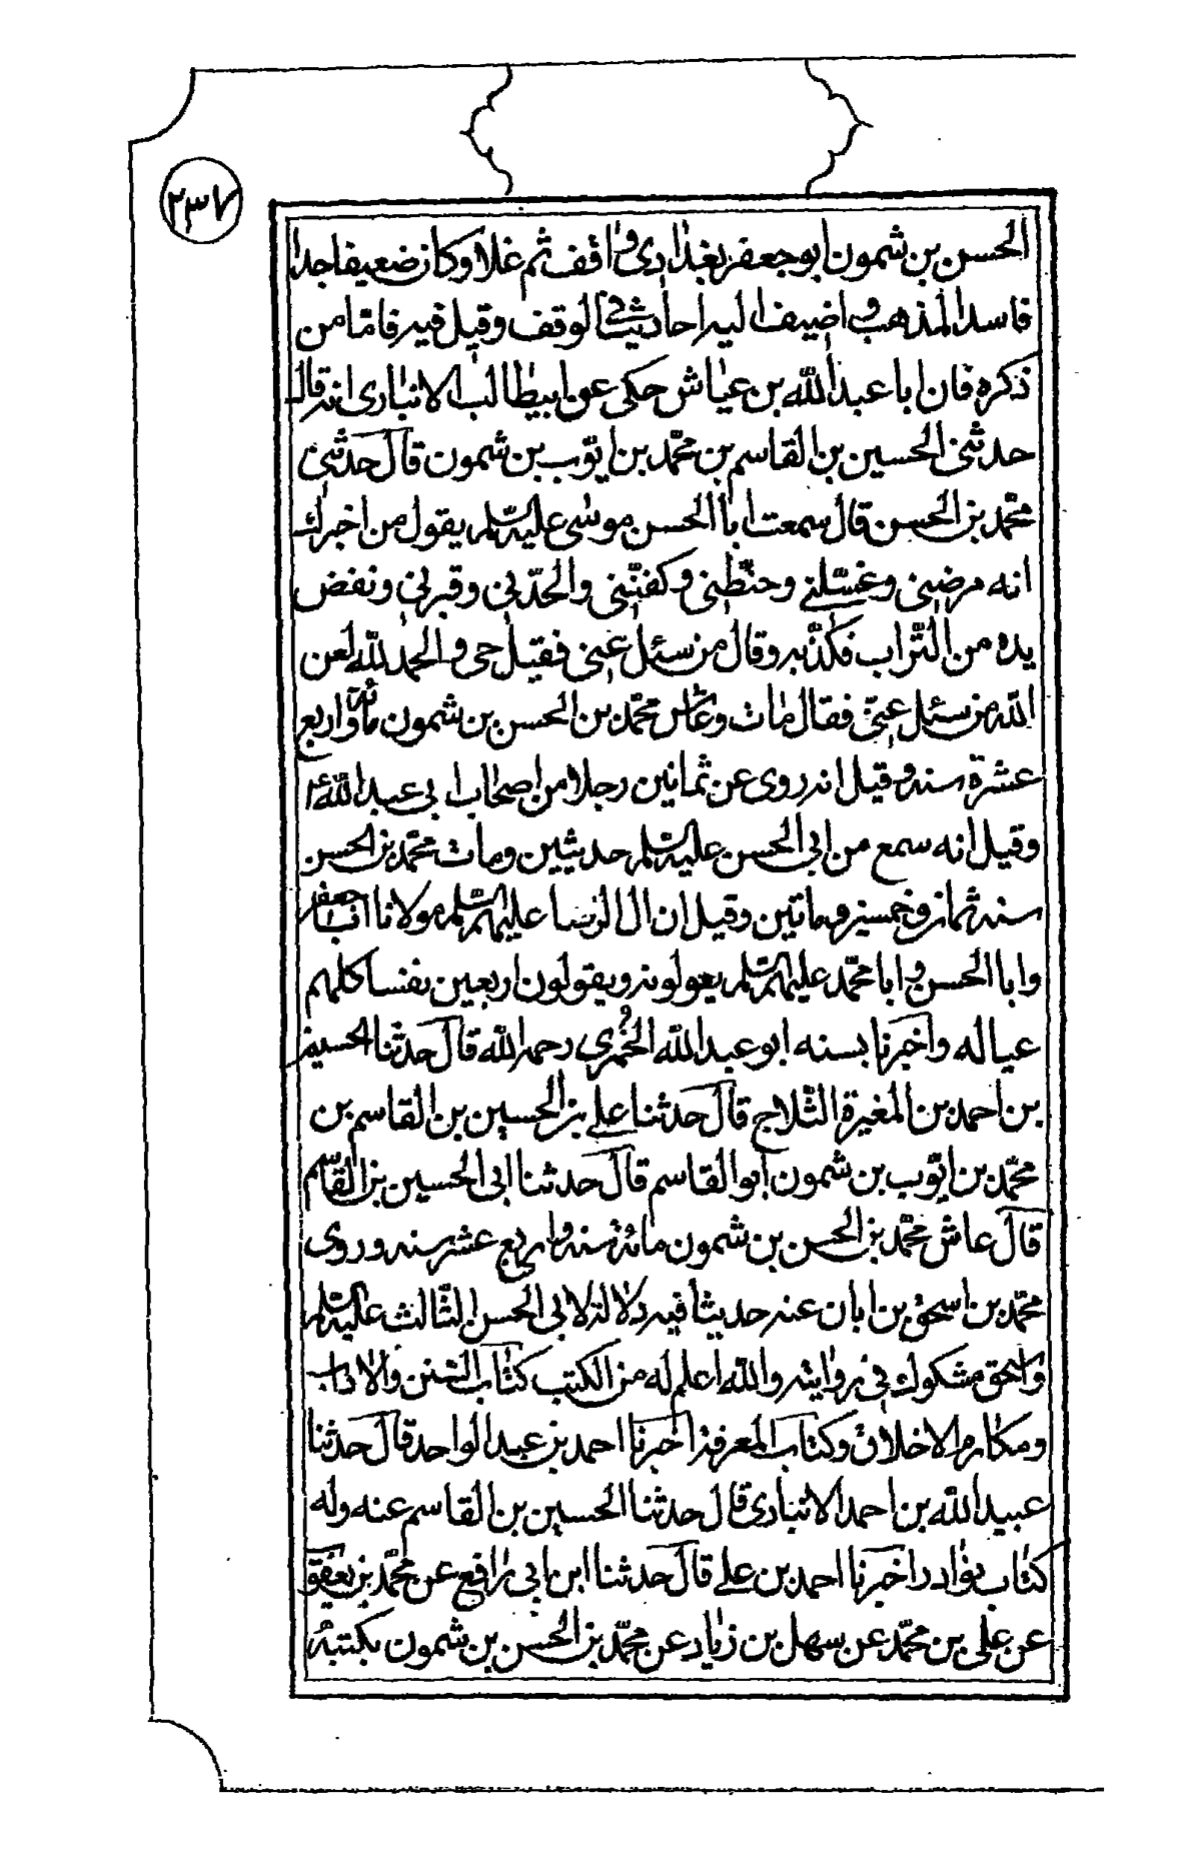 ٢٣٧
الحسن بن شمون ابو جعفر بغدادى واقف ثم غلا وكان ضعيفا جدا
فاسد المذهب و اضيف اليه احاديث فى الوقف وقيل فيه فامّا من
ذكره فان ابا عبد الله بن عياش حكى عن ابيطالب الانبارى انه قال
حدثنى الحسين بن القاسم بن محمّد بن ايّوب بن شمون قال حدثنى
محمّد بن الحسن قال سمعت ابا الحسن موسى عليه السّلم يقول من اخبرك
انه مرضنى وغسّلنى وحنّطنى وكفّننى والحدّنى وقبرنى ونفض
يده من التّراب فكذّبه وقال من سئل عنى فقيل حى والحمد لله لعن
الله من سئل عنى فقال مات وعاش محمّد بن الحسن بن شمون مائة واربع
عشرة سنه وقيل انه روى عن ثمانين رجلا من اصحاب ابى عبد الله ع
وقيل انه سمع من ابى الحسن عليه السّلم حديثين ومات محمّد بن الحسن
سنه ثمان وخمسين وماتين وقيل ان ال الرضا عليهم السّلم مولانا ابا جعفر
وابا الحسن و ابا محمّد عليهم السّلم يعولونه ويقولون اربعين نفسا كلهم
عياله واخبرنا بسنه ابو عبد الله الخُمرى رحمه الله قال حدثنا الحسين
بن احمد بن المغيرة الثّلاج قال حدثنا على بن الحسين بن القاسم بن
محمّد بن ايّوب بن شمون ابو القاسم قال حدثنا ابى الحسين بن القاسم
قال عاش محمّد بن الحسن بن شمون مائة سنه واربع عشر سنه وروى
محمّد بن اسحق بن ابان عنه حديثا فيه دلالة لابى الحسن الثّالث عليه السّلم
واسحق مشكوك فى روايته والله اعلم له من الكتب كتاب السّنن والاداب
ومكارم الاخلاق وكتاب المعرفة اخبرنا احمد بن عبد الواحد قال حدثنا
عبيد الله بن احمد الانبارى قال حدثنا الحسين بن القاسم عنه وله
كتاب نوادر اخبرنا احمد بن على قال حدثنا ابن ابى رافع عن محمّد بن يعقو
عن على بن محمّد عن سهل بن زياد عن محمّد بن الحسن بن شمون بكتبه